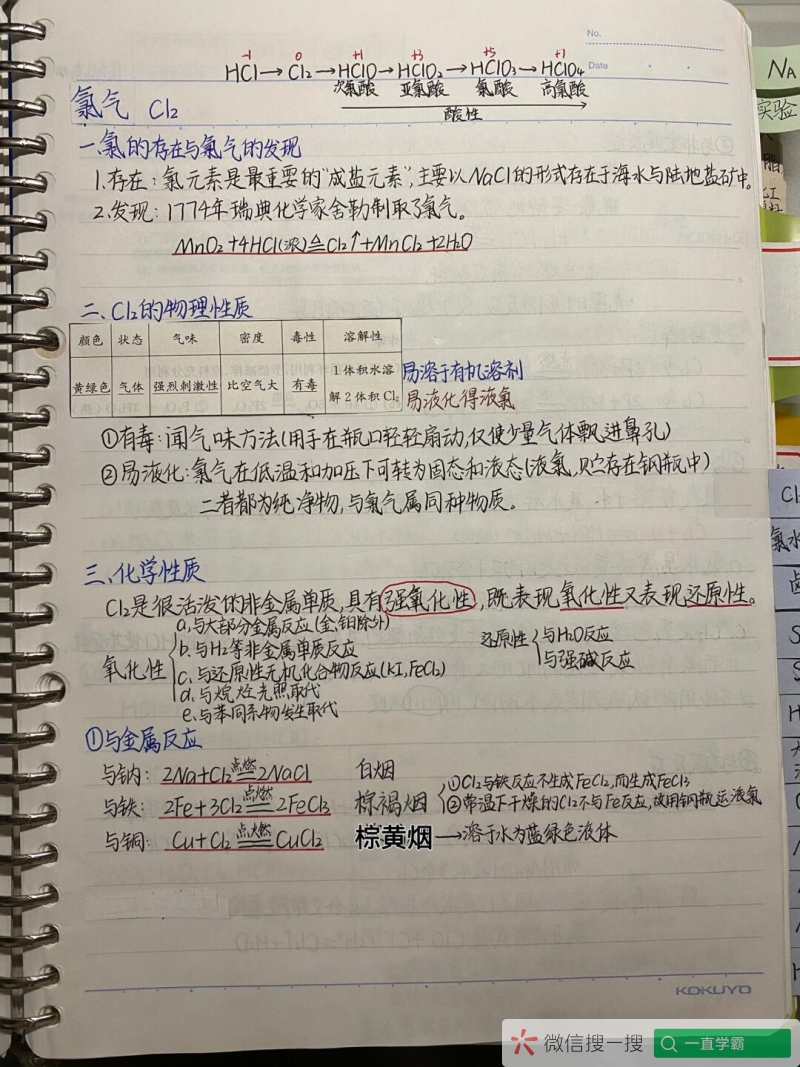 No.
Date
-1 0 +1 +3 +5 +1
HCl→Cl₂→HClO→HClO₂→HClO₃→HClO₄
次氯酸 亚氯酸 氯酸 高氯酸
酸性
氯气 Cl₂
一.氯的存在与氯气的发现
1.存在:氯元素是最重要的“成盐元素”,主要以NaCl的形式存在于海水与陆地盐矿中。
2.发现:1774年瑞典化学家舍勒制取了氯气。
MnO₂+4HCl(浓)≙Cl₂↑+MnCl₂+2H₂O
二、Cl₂的物理性质
颜色 状态 气味 密度 毒性 溶解性
黄绿色 气体 强烈刺激性 比空气大 有毒 1体积水溶解2体积Cl₂
易溶于有机溶剂
易液化得液氯
①有毒:闻气味方法(用手在瓶口轻轻扇动,仅使少量气体飘进鼻孔)
②易液化:氯气在低温和加压下可转为固态和液态(液氯,贮存在钢瓶中)
二者都为纯净物,与氯气属同种物质。
三、化学性质
Cl₂是很活泼的非金属单质,具有强氧化性,既表现氧化性又表现还原性。
氧化性
a,与大部分金属反应(金,铂除外)
b.与H₂等非金属单质反应
c.与还原性无机化合物反应(KI,FeCl₂)
d.与烷烃光照取代
e.与苯同系物发生取代
还原性
与H₂O反应
与强碱反应
①与金属反应
与钠: 2Na+Cl₂点燃══2NaCl 白烟
与铁: 2Fe+3Cl₂点燃══2FeCl₃ 棕褐烟
①Cl₂与铁反应不生成FeCl₂,而生成FeCl₃
②常温下干燥的Cl₂不与Fe反应,故用钢瓶运液氯
与铜: Cu+Cl₂点燃══CuCl₂ 棕黄烟→溶于水为蓝绿色液体
KOKUYO
NA
实验
脂
化工
Cl
氯水
卤
S
S
H
微信搜一搜
一直学霸